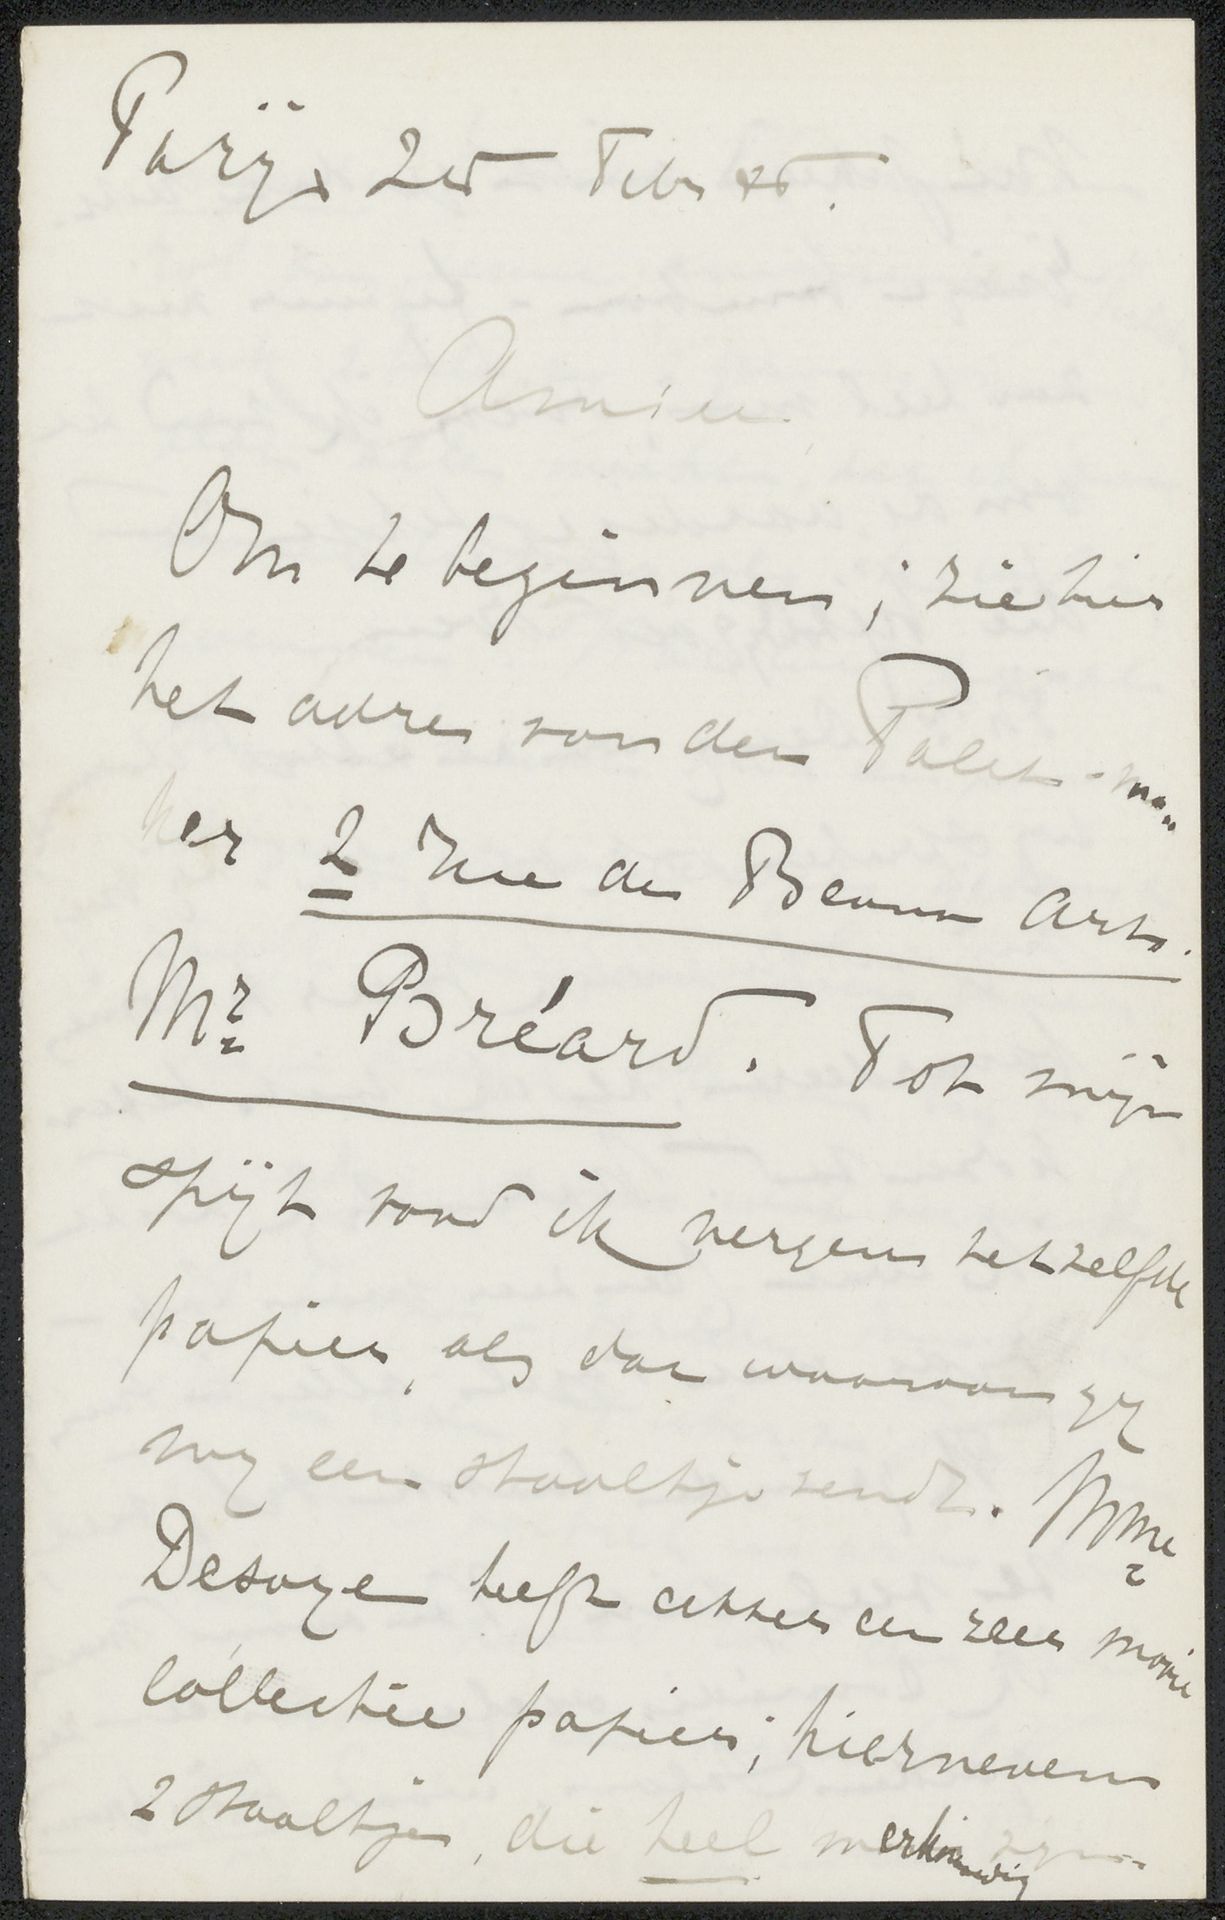 Parijs 25 Febr 85.
Amice
Om te beginnen; ziehier
het adres van den Palet-ma„
ker 2 Rue des Beaux Arts.
Mr Bréard. Tot mijn
spijt vond ik nergens hetzelfde
papier, als dat waarvan gij
mij een staaltje zendt. Mme
Desoye heeft echter een zeer mooie
collectie papier; hiernevens
2 staaltjes, die heel merkwaardig zijn.